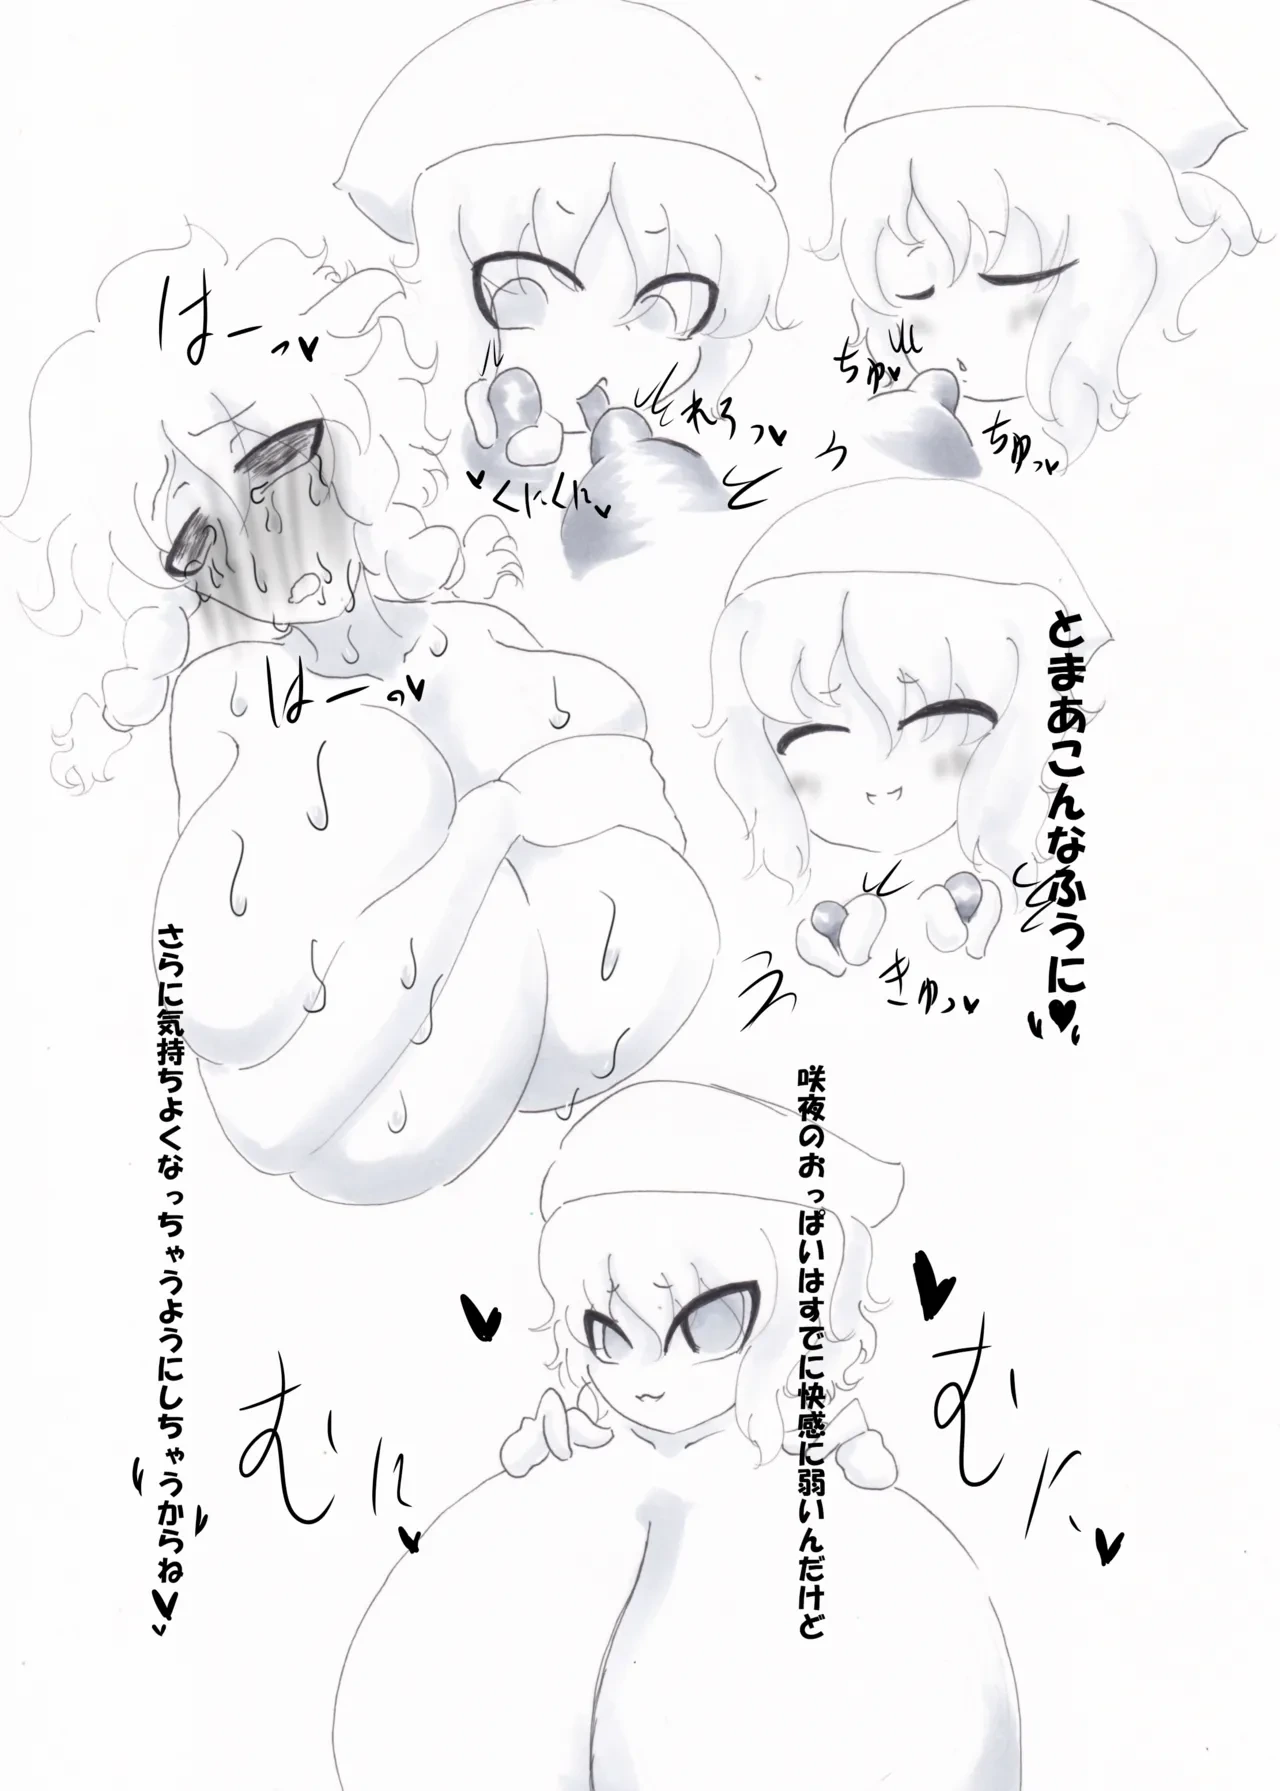 ちゅ♥
ちゅっ♥
れろっ♥
くにくに♥
はーっ♥
はーっ♥
とまあこんなふうに♥
きゅっ♥
咲夜のおっぱいはすでに快感に弱いんだけど
さらに気持ちよくなっちゃうようにしちゃうからね♥
むに♥
むに♥